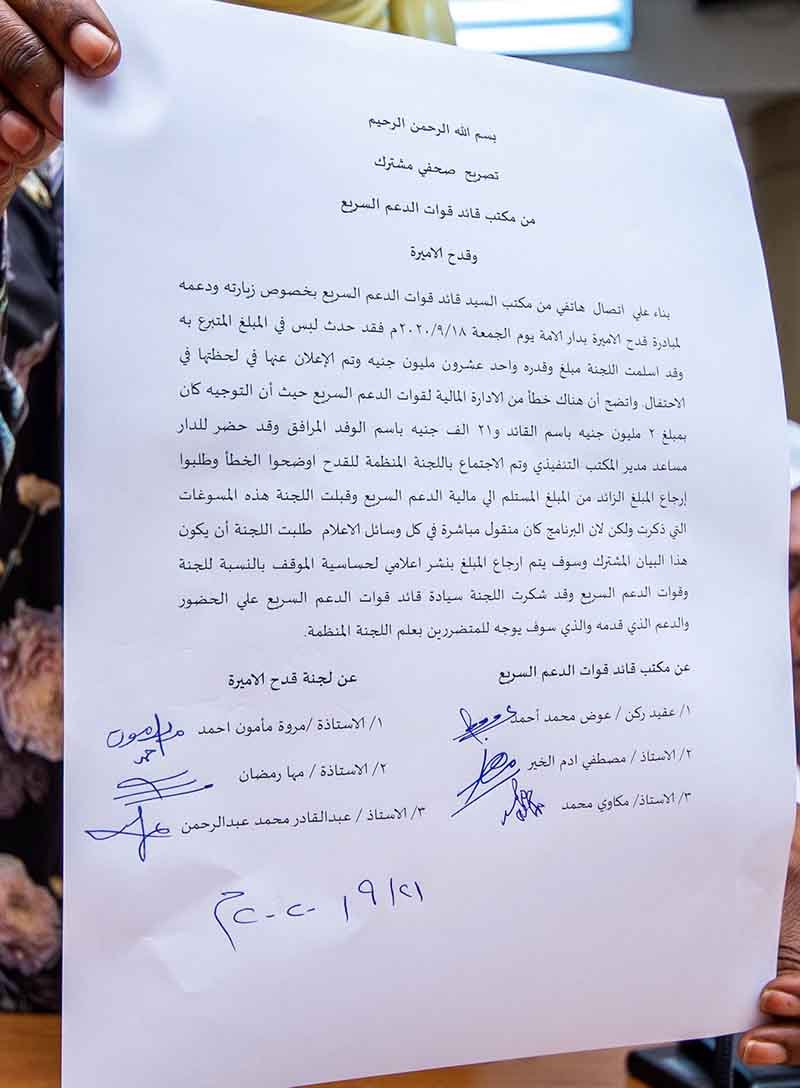 بسم الله الرحمن الرحيم
تصريح صحفي مشترك
من مكتب قائد قوات الدعم السريع
وقدح الاميرة
بناء علي اتصال هاتفي من مكتب السيد قائد قوات الدعم السريع بخصوص زيارته ودعمه
لمبادرة قدح الاميرة بدار الامة يوم الجمعة ٢٠٢٠/٩/١٨م فقد حدث لبس في المبلغ المتبرع به
وقد اسلمت اللجنة مبلغ وقدره واحد عشرون مليون جنيه وتم الإعلان عنها في لحظتها في
الاحتفال. واتضح أن هناك خطأ من الادارة المالية لقوات الدعم السريع حيث أن التوجيه كان
بمبلغ ٢ مليون جنيه باسم القائد و٢١ الف جنيه باسم الوفد المرافق وقد حضر للدار
مساعد مدير المكتب التنفيذي وتم الاجتماع باللجنة المنظمة للقدح اوضحوا الخطأ وطلبوا
إرجاع المبلغ الزائد من المبلغ المستلم الي مالية الدعم السريع وقبلت اللجنة هذه المسوغات
التي ذكرت ولكن لان البرنامج كان منقول مباشرة في كل وسائل الاعلام طلبت اللجنة أن يكون
هذا البيان المشترك وسوف يتم ارجاع المبلغ بنشر اعلامي لحساسية الموقف بالنسبة للجنة
وقوات الدعم السريع وقد شكرت اللجنة سيادة قائد قوات الدعم السريع علي الحضور
والدعم الذي قدمه والذي سوف يوجه للمتضررين بعلم اللجنة المنظمة.
عن مكتب قائد قوات الدعم السريع
١/ عقيد ركن / عوض محمد أحمد
٢/ الاستاذ / مصطفي ادم الخير
٣/ الاستاذ/ مكاوي محمد
عن لجنة قدح الاميرة
١/ الاستاذة /مروة مأمون احمد
٢/ الاستاذة / مها رمضان
٣/ الاستاذ / عبدالقادر محمد عبدالرحمن
٢١/ ٩/ ٢٠٢٠م